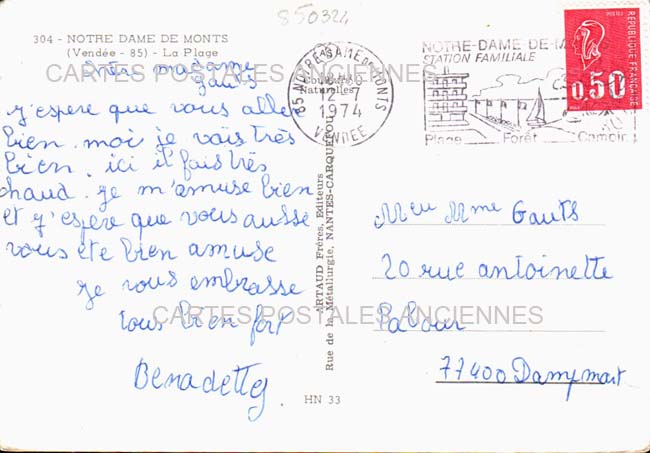 850324
304 - NOTRE DAME DE MONTS
(Vendée - 85) - La Plage
CARTES POSTALES ANCIENNES
madame
Gauts
j'espere que vous aller
bien. moi je vais très
bien. ici il fais très
chaud. je m'amuse bien
et j'espere que vous aussi
vous ete bien amuse
je vous embrasse
tous bien fort
Benadette
Couleurs
Naturelles
ARTAUD Frères, Editeurs
Rue de la Métallurgie, NANTES-CARQUEFOU
HN 33
85 NOTRE DAME DE MONTS
12-7
1974
VENDEE
NOTRE-DAME-DE-MONTS
STATION FAMILIALE
Plage Forêt Camping
REPUBLIQUE FRANÇAISE
0,50
M et Mme Gauts
20 rue antoinette
CARTES POSTALES ANCIENNES
77400 Dampmart